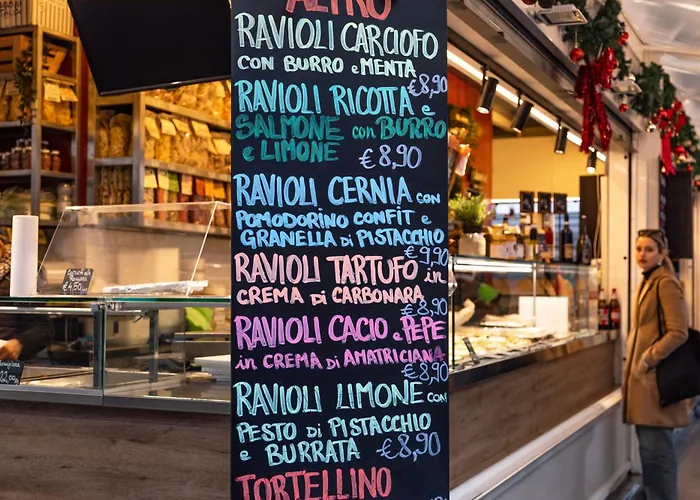 ALTRO
RAVIOLI CARCIOFO
CON BURRO e MENTA
€8,90
RAVIOLI RICOTTA e
SALMONE con BURRO
e LIMONE €8,90
RAVIOLI CERNIA con
POMODORINO CONFIT e
GRANELLA di PISTACCHIO
€9,90
RAVIOLI TARTUFO in
CREMA di CARBONARA
€8,90
RAVIOLI CACIO e PEPE
in CREMA di AMATRICIANA
€8,90
RAVIOLI LIMONE con
PESTO di PISTACCHIO
e BURRATA €8,90
TORTELLINO
€4,50